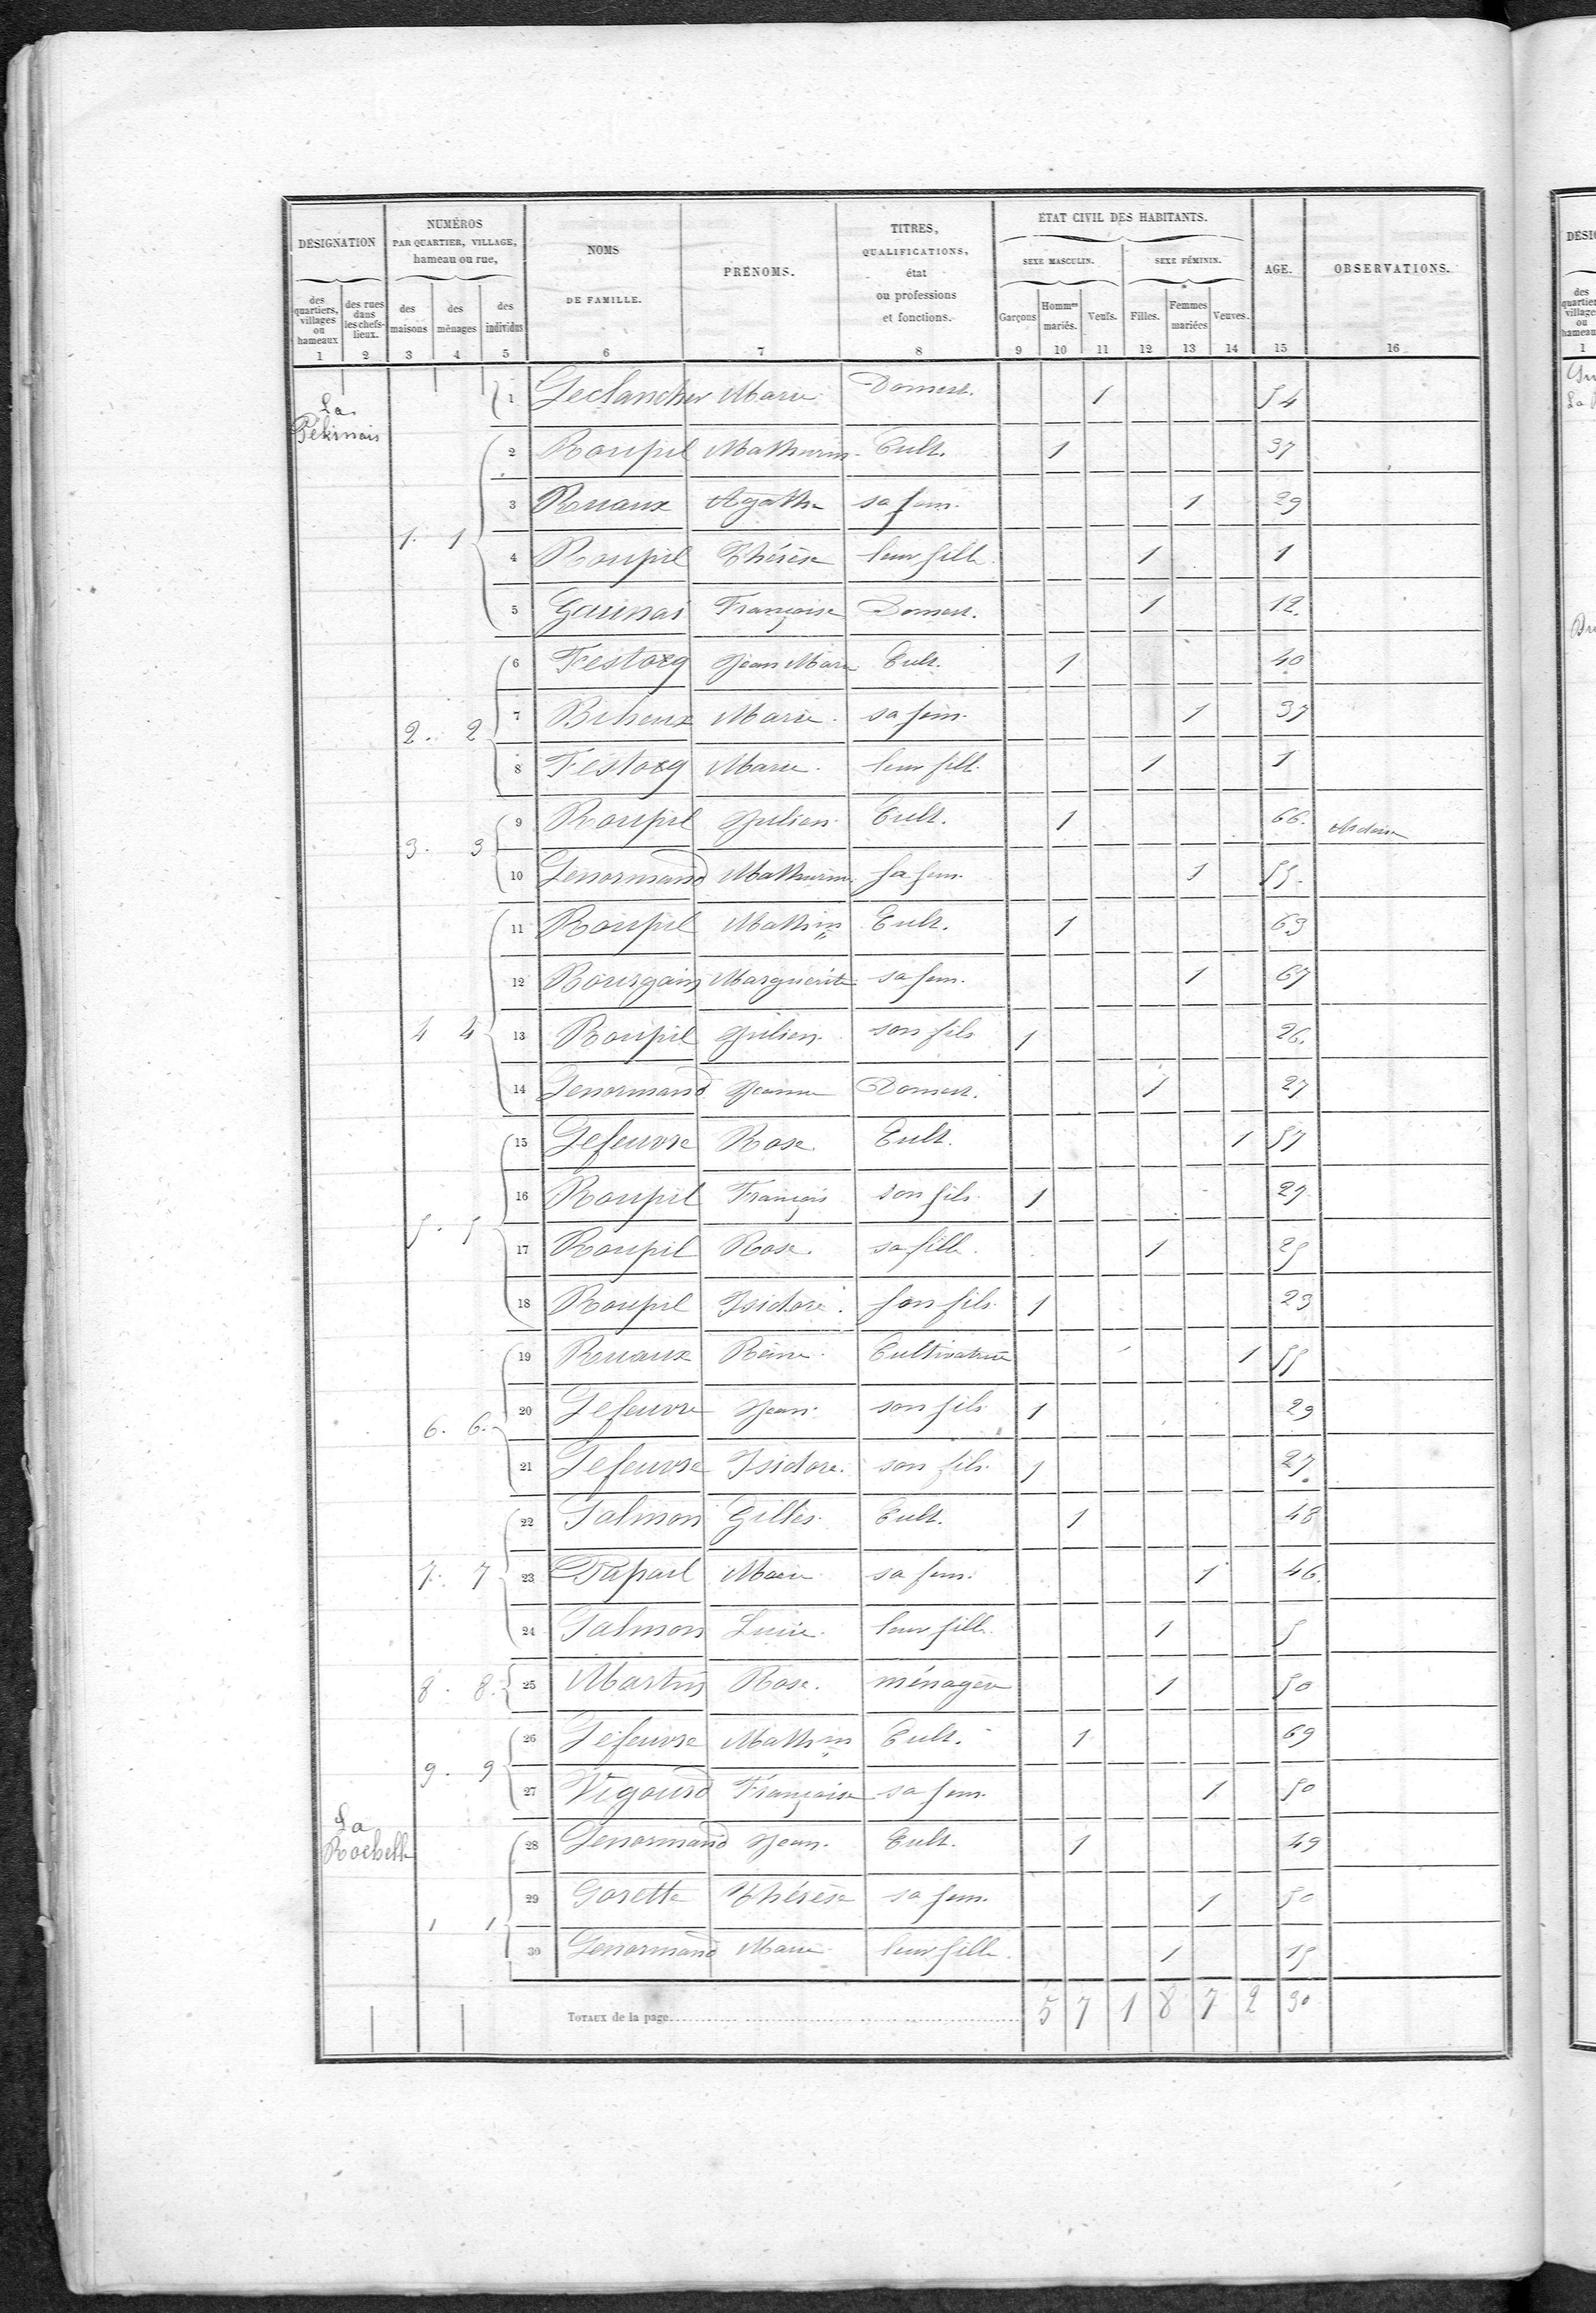 DÉSIGNATION
NUMÉROS PAR QUARTIER, VILLAGE, hameau ou rue,
NOMS DE FAMILLE.
PRÉNOMS.
TITRES, QUALIFICATIONS, état ou professions et fonctions.
ÉTAT CIVIL DES HABITANTS.
AGE.
OBSERVATIONS.
SEXE MASCULIN. SEXE FÉMININ.
des quartiers, villages ou hameaux
des rues dans les chefs-lieux.
des maisons
des ménages
des individus
Garçons Hommes mariés. Veufs. Filles. Femmes mariées Veuves.
1 2 3 4 5 6 7 8 9 10 11 12 13 14 15 16
1 Leclancher Marie Domest. 1 54
La
2 Roupil Mathurin Cult. 1 37
3 Ruaux Agathe sa fem. 1 29
1. 1
4 Roupil Thérèse leur fille 1 1
5 Françoise Domest. 1 12.
6 Jean Marie Cult. 1 40
7 Biheux Marie. sa fem. 1 37
2. 2
8 Marie. leur fill. 1 1
9 Roupil Julien Cult. 1 66.
3. 3
10 Lenormand Mathurine sa fem. 1 55.
11 Roupil Mathin Cult. 1 63
12 Bourgain Marguerite sa fem. 1 67
4 4 13 Roupil Julien son fils 1 26.
14 Lenormand Jeanne Domest. 1 27
15 Lefeuvre Rose Cult. 1 57
16 Roupil François son fils 1 27
5. 5
17 Roupil Rose. sa fille 1 25
18 Roupil Isidore. son fils 1 23
19 Ruaux Reine. Cultivatrice 1 55
20 Lefeuvre Jean. son fils 1 29
6. 6.
21 Lefeuvre Isidore. son fils. 1 27.
22 Salmon Gilles Cult. 1 48
7. 7 23 Marie sa fem. 1 46.
24 Salmon Lucie. leur fille 1 5
8. 8. 25 Martin Rose. ménagère 1 50
26 Lefeuvre Mathin Cult. 1 69
9. 9
27 Vigourd Françoise sa fem. 1 50
La
Rochelle
28 Lenormand Jean. Cult. 1 49
29 Gorette Thérèse sa fem. 1 50
1 1
30 Lenormand Marie leur fille. 1 15
TOTAUX de la page 5 7 1 8 7 2 30